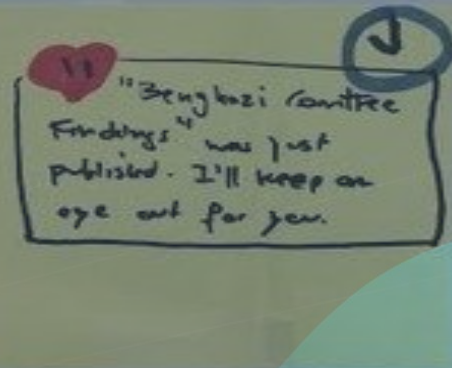 11
"Benghazi Comittee
Findings" was just
published. I'll keep an
eye out for you.